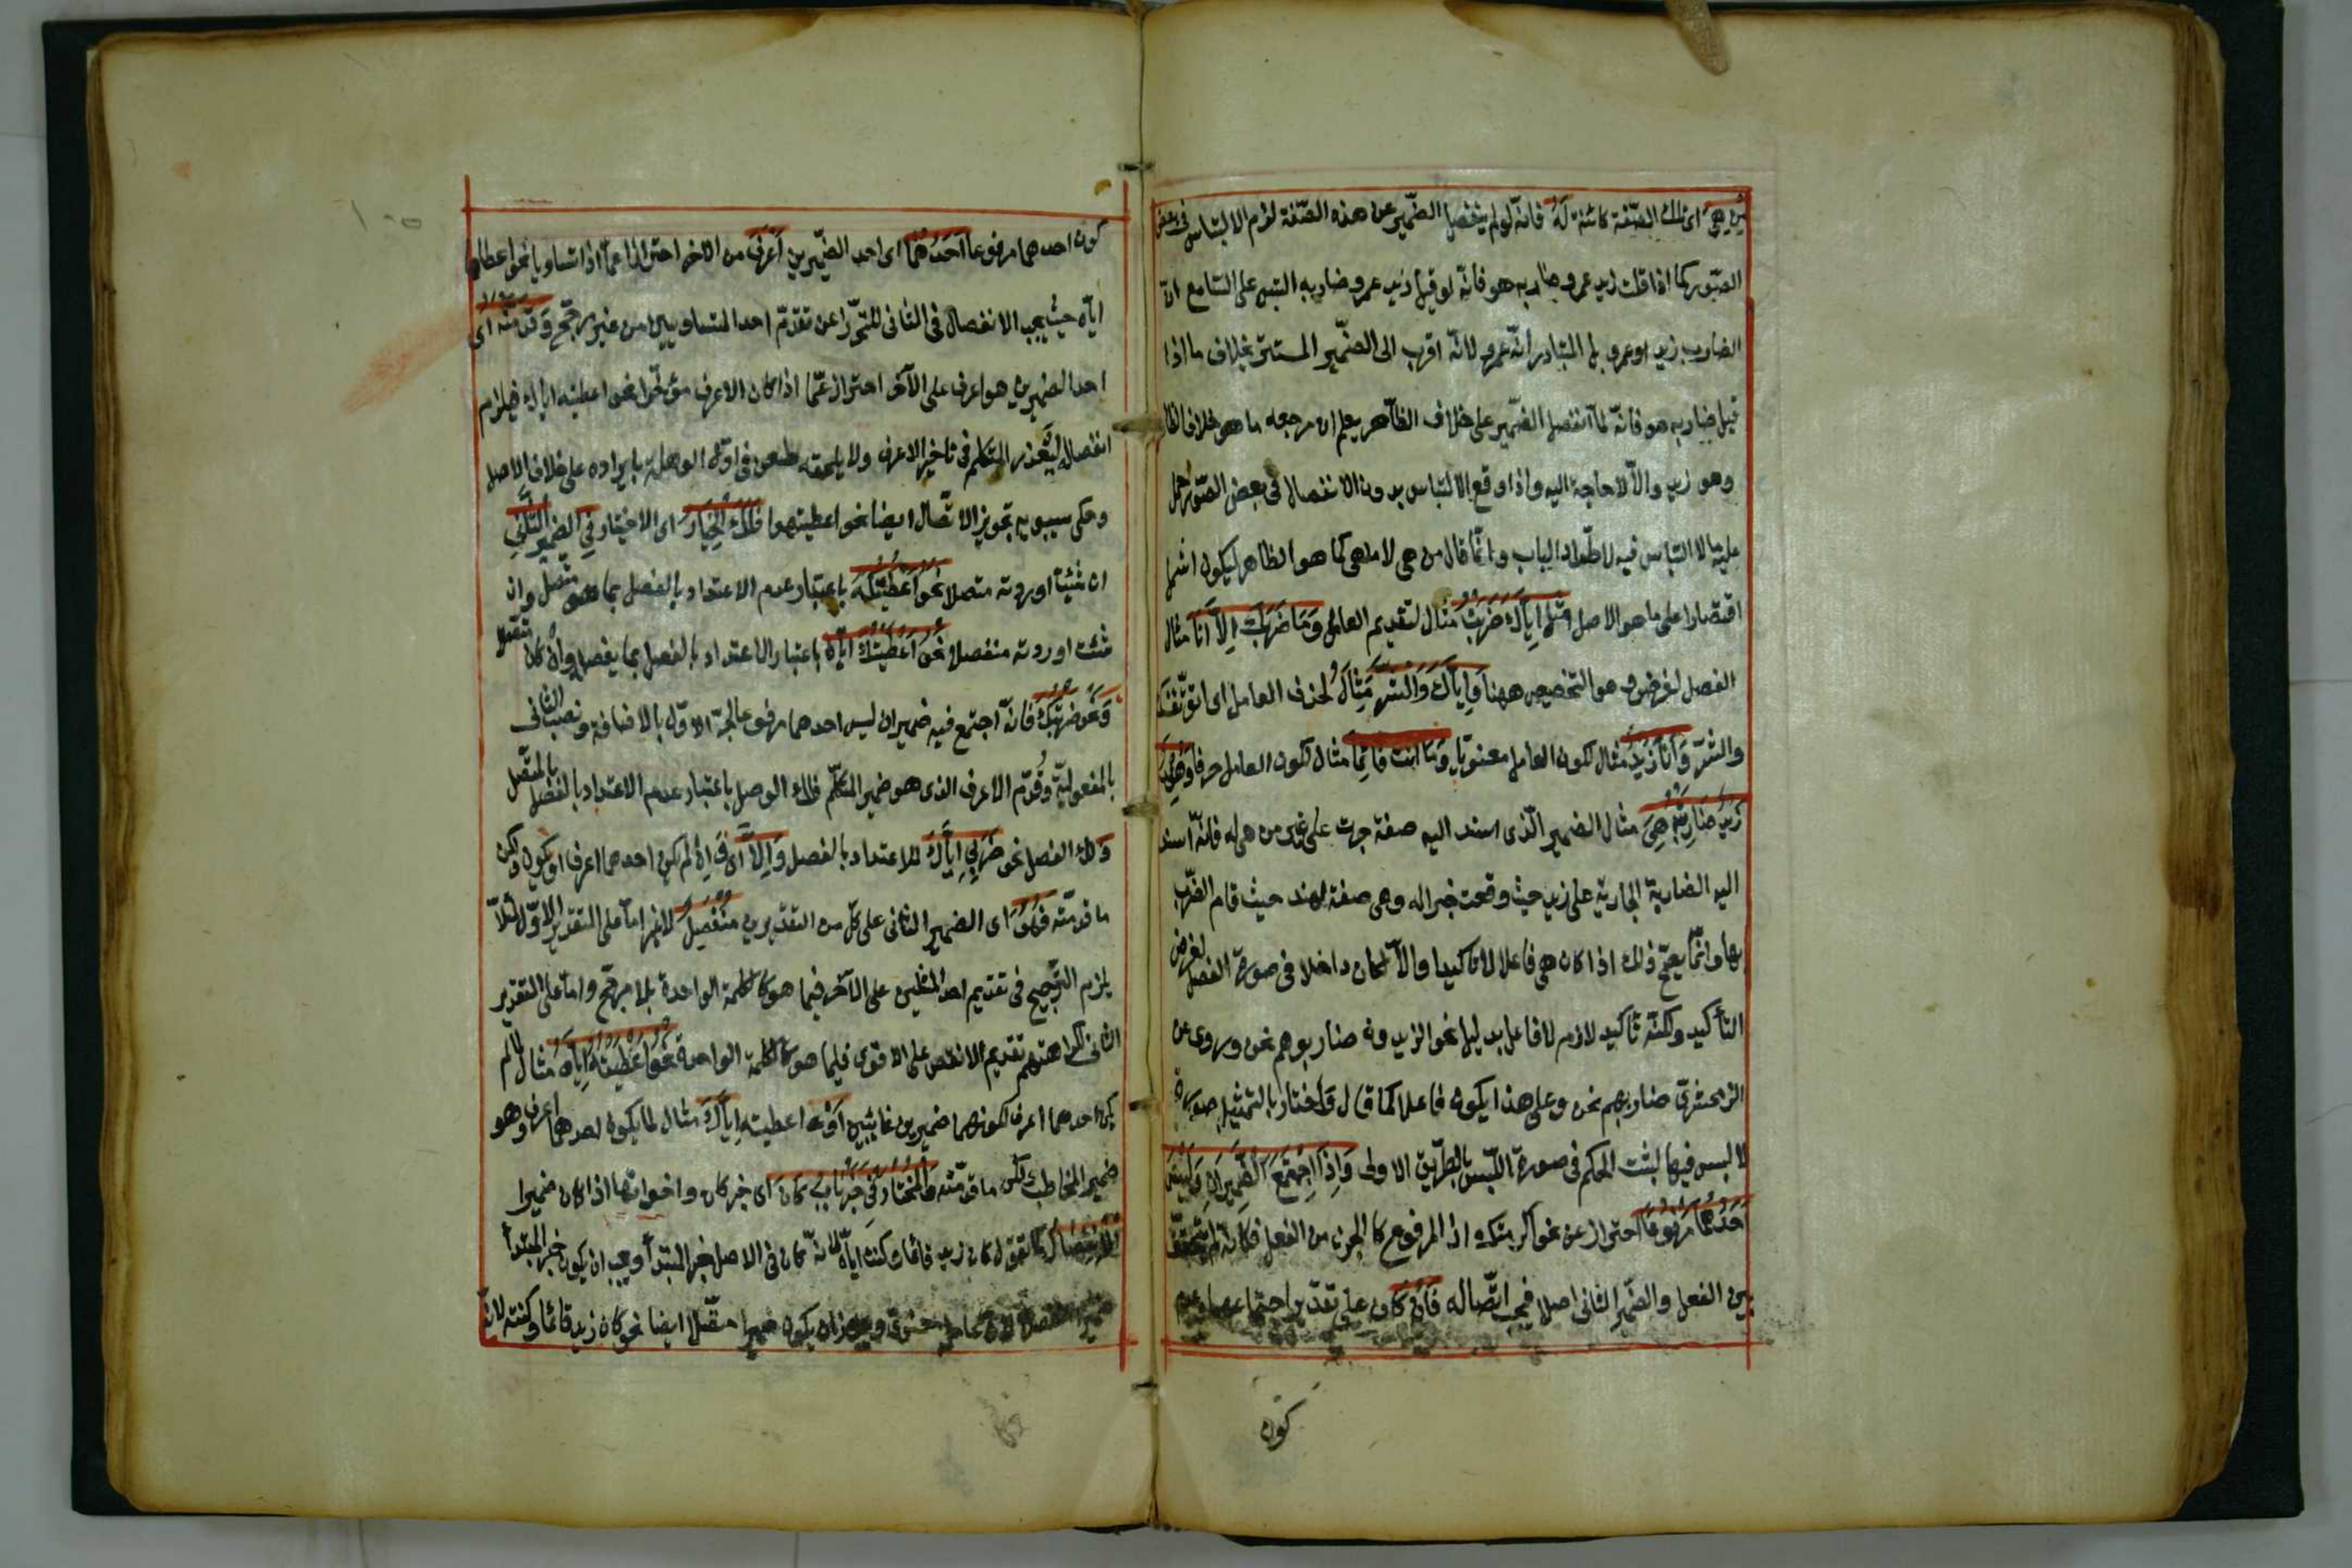 من هي اى تلك الصّفة كائنة له فانّه لو لم ينفصل الضّمير عن هذه الصّفة لزم الالتباس فى بعض
الصّور كما اذا قلت زيد عمرو ضاربه هو فانّه لو قيل زيد عمرو ضاربه التبس على السّامع انّ
الضارب زيد او عمرو بل المتبادر انّه عمرو لانّه اقرب الى الضّمير المستتر بخلاف ما اذا
قيل ضاربه هو فانّه لمّا انفصل الضّمير على خلاف الظّاهر يعلم ان مرجعه ما هو خلاف الظا
وهو زيد والّا لا حاجة اليه واذا وقع الالتباس بدون الانفصال فى بعض الصّور حمل
عليه ما لا التباس فيه لاطّراد الباب وانّما قال من هي لا ما هى كما هو الظاهر ليكون اشمل
اقتصارا على ما هو الاصل مثل اِيّاك ضَرَبْتُ مثال لتقديم العامل وَمَا ضَرَبَكَ اِلّا اَنَا مثال
الفصل لغرض وهو التخصيص ههنا وَاِيّاكَ وَالشَّرَّ مثال لحذف العامل اى اتق نفسك
والشّر وَاَنَا زَيْدٌ مثال لكون العامل معنويّا وَمَا اَنْتَ قَائِمًا مثال لكون العامل حرفا وَهِنْدٌ
زَيْدٌ ضَارِبَتُهُ هِيَ مثال الضمير الّذى اسند اليه صفة جرت على غير من هى له فانّه اسند
اليه الضاربة الجارية على زيد حيث وقعت خبرا له وهى صفة لهند حيث قام الضّرب
بها وانّما يصحّ ذلك اذا كان هى فاعلا لا تاكيدا والّا لكان داخلا فى صورة الفصل لغرض
التأكيد ولكنّه تاكيد لازم لا فاعل بدليل نحو الزيدون ضاربوهم نحن وروى عن
الزمخشرىّ ضاربهم نحن وعلى هذا يكون فاعلا كما قال واختار بالتمثيل صورة
لا لبس فيها لثبت الحكم فى صورة اللّبس بالطّريق الاولى وَاِذَا اجْتَمَعَ الضَّمِيرَانِ وَلَيْسَ
اَحَدُهُمَا مَرْفُوعًا احتراز عن نحو اكرمتك اذ المرفوع كالجزء من الفعل فكانّه لم يتحقّق
بين الفعل والضّمير الثانى اصلا فيجب اتّصاله فَاِنْ كَانَ على تقدير اجتماعهما وعدم
كون
كون احدهما مرفوعا اَحَدُهُمَا اى احد الضّميرين اَعْرَفَ من الاخر احترازا عمّا اذا تساويا نحو اعطاها
ايّاه حيث يجب الانفصال فى الثانى للتحرّز عن تقدّم احد المتساويين من غير مرجّح وَقَدَّمْتَهُ اى
احد الضميرين هو اعرف على الآخر احتراز عمّا اذا كان الاعرف مؤخّرا نحو اعطيته اياك فيلزم
انفصاله ليُعذر المتكلم فى تاخير الاعرف ولا يلحقه طعن فى اوّل الوهلة بايراده على خلاف الاصل
وحكى سيبويه تجويز الاتّصال ايضا نحو اعطيتهوك فَلَكَ الخِيَارُ اى الاختيار فِي الضمير الثَّانِي
ان شئت اوردته متصلا نَحْوُ اَعْطَيْتُكَهُ باعتبار عدم الاعتداد بالفصل بما هو متّصل وان
شئت اوردته منفصلا نحو اَعْطَيْتُكَ ايّاهُ باعتبار الاعتداد بالفصل بما يفصل وان كان متّصلا
وَنَحْوُ ضَرْبِيكَ فانّه اجتمع فيه ضميران ليس احدهما مرفوعا لجرّ الاوّل بالاضافة ونصب الثانى
بالمفعوليّة وقُدّم الاعرف الذى هو ضمير المتكلّم فلك الوصل باعتبار عدم الاعتداد بالفصل بالمتّصل
ولك الفصل نحو ضَرْبِي اِيّاكَ للاعتداد بالفصل وَاِلَّا اى وان لم يكن احدهما اعرف او يكون ولكن
ما قدمته فَهُوَ اى الضمير الثانى على كلّ من التقديرين مُنْفَصِلٌ لا غير امّا على التقدير الاوّل لئلّا
يلزم التّرجيح فى تقديم احد المثلين على الآخر فيما هو كالكلمة الواحدة بلا مرجّح وامّا على التقدير
الثانى لكراهتهم تقديم الانقص على الاقوى فيما هو كالكلمة الواحدة نَحْوُ اَعْطَيْتُهُ اِيّاهُ مثال لما لم
يكن احدهما اعرف لكونهما ضميرين غائبين اَوْ نحو اعطيته اِيّاكَ مثال لما يكون احدهما اعرف وهو
ضمير المخاطب لكن ما قدّمته وَالْمُخْتَارُ فِي خَبَرِ بَابِ كَانَ اى خبر كان واخواتها اذا كان ضميرا
الْاِنْفِصَالُ كما تقول كان زيد قائما وكنت ايّاه لانّه كان فى الاصل خبر المبتدأ ويجب ان يكون خبر المبتدأ
ضميرا منفصلا لانّ عامله معنوىّ ويجوز ان يكون ضميرا متّصلا ايضا نحو كان زيد قائما وكنته لانّه